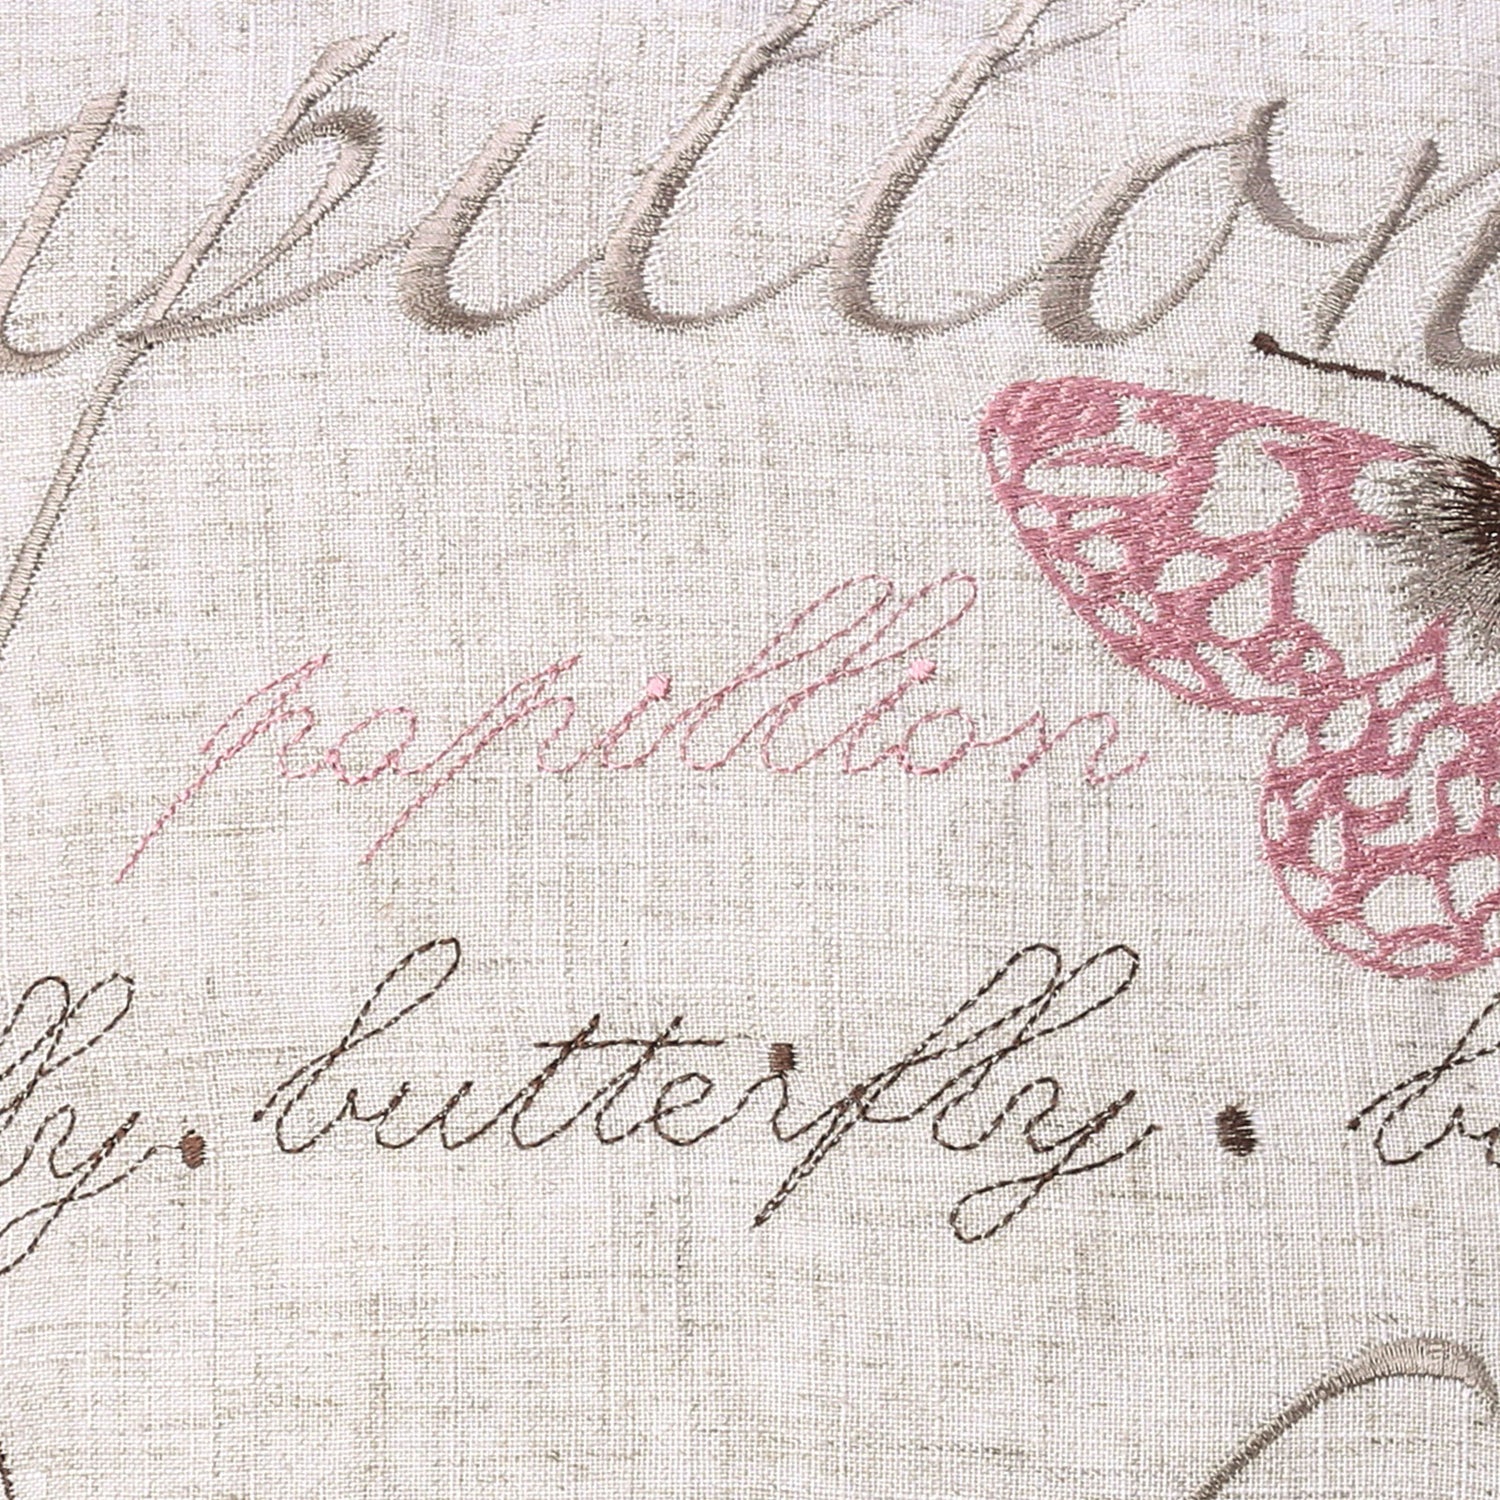 apillon
papillion
fly. butterfly. bu